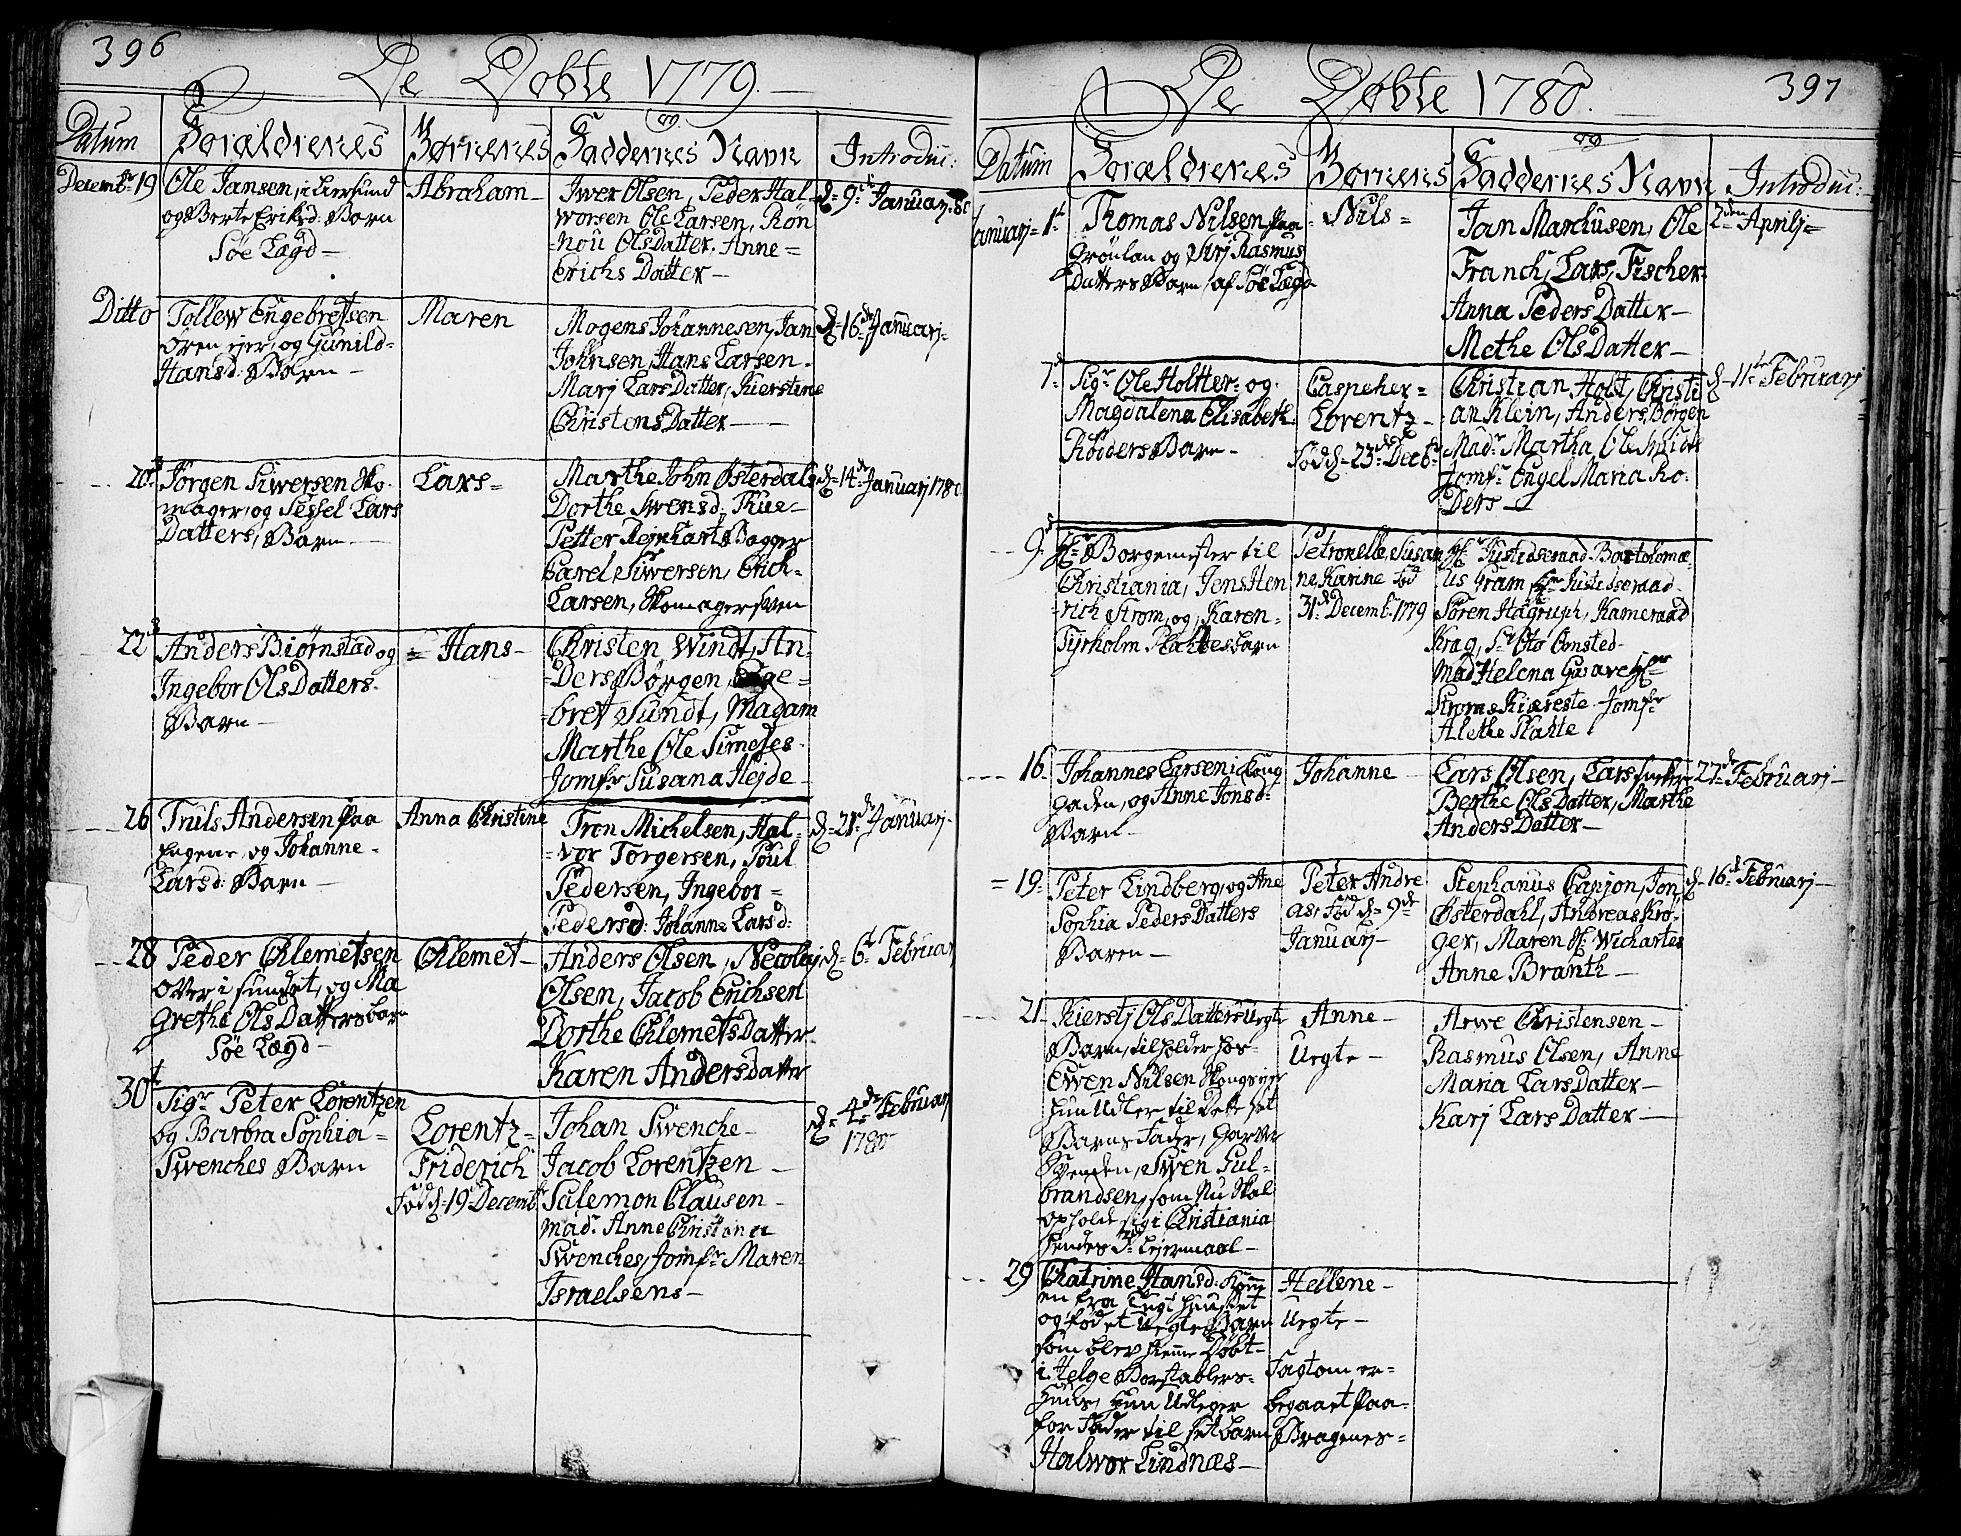 396
De Døbte 1779.
Datum
Forældrenes
Børnenes
og
Faddernes Navn
Introduc:
Decembr 19
Ole Jansen, i Liersund
og Berte Eriksd: Barn
Søe Lægd
Abraham
Iwer Olsen, Peder Hal-
worsen Ole Larsen, Rön
nou OlsDatter, Anne
Erichs Datter
d: 9de Januarj 80
Ditto
Tollew Engebretsen
Øren ejer, og Gunild
Hansd: Barn
Maren
Mogens Johannesen, Jan
Johnsen, Hans Larsen
Marj LarsDatter, Kierstine
ChristensDatter
d: 16de Januarj
20d
Jørgen Siwersen Sko-
mager, og Sessel Lars
Datters, Barn
Lars
Marthe John Østerdals
Dorthe Swensd:
Petter Rejnharts Bagger
Carel Siwersen, Erich
Larsen, Skomager swen
d: 14de Januarj 1780
22d
Anders Biørnstad og
Ingebor OlsDatters
Barn
Hans
Christen Windt, An-
ders Børgen, Enge-
bret Sundt, Madam
Marthe Ole Simeses
Jomfr Susana Hejde
26
Truls Andersen paa
Engene, og Johanne
Larsd: Barn
Anna Christine
Tron Michelsen, Hal-
vor Torgersen, Poul
Pedersen, Ingebor
Pedersd: Johanne Larsd:
d: 21de Januarj
28
Peder Chlemetsen
over i sundet, og Ma
grethe OlsDatters barn
Søe Lægd
Chlemet
Anders Olsen, Necolaj
Olsen, Jacob Erichsen
Dorthe ChlemetsDatter
Karen Andersdatter
d: 6te Februar
30t
Sigr Peter Lorentzen
og Barbra Sophia
Swenches Barn
Lorentz
Friderich
Født d: 19 Decembr
Johan Swenche
Jacob Lorentzen
Salemon Clausen
Madr. Anne Christina
Swenches, Jomfr Maren
Israelsens
d: 4de Februarj
1780
397
De Døbte 1780.
Datum
Forældrenes
Børnenes
og
Faddernes Navn
Introduc:
Januarj 1t
Thomas Nilsen paa
Grønlan og Sirj Rasmus
Datters Barn, af Søe Lægd
Nils
Jan Marchusen, Ole
Franch, Lars, Fischer
Anna PedersDatter
Methe OlsDatter
2den Aprilj
7d
Sigr Ole Holtter og
Magdalena Elisabeth
Rödders Barn
Caspeher
Lorentz
Født d: 23de Decbr
Christian Holt, Christi-
an Klein, Anders Børgen
Madr Martha Ole Smidt
Jomfr Engel Maria Ro-
ders
d: 11te Februarj
9d
Hr Borgemester til
Christiania, Jens Hen
rich Strøm, og Karen
Tyrholm Stahtes barn
Petronelle Susan
ne Karine Fød
31d Decemb. 1779
Hr Justidseraad Bartolomæ
us Gram Hr Justidseraad
Søren Hagrup, Kameraad
Krag, Sr Otto Omsted
Mad Helena Gusave Hr
Krams Kiæreste Jomfr
Alethe Stahte
16
Johannes Larsen i Kong
gaden, og Anne Jonsd:
Barn
Johanne
Lars Olsen, Lars
Berthe OlsDatter, Marthe
AndersDatter
27de Februarj
19
Peter Lindberg, og Ane
Sophia PedersDatters
Barn
Peter Andre
as, Fød d: 9de
Januarj
Stephanus Capjon, Jon
Østerdahl, Andreas Krø-
ger, Maren Hr Wicharter
Anne Branth
d: 16d Februarj
21
Kierstj OlsDatters Uegte
Barn, tilholder hos
Ewen Nilsen Kongsejer
hun Udler til dette sit
Barns Fader, Garve
Svenden, Swen Gul-
brandsen, som Nu Skal
opholde sig i Christiania
Hendes 3d Lejermaal
Anne
Uegte
Arwe Christensen
Rasmus Olsen, Anne
Maria LarsDatter
Karj LarsDatter
29
Chatrine Hansd: kom
en fra Tugthuuset
og fødet Uegte Barn
som blev Hiemme Døbt
i Helge Borstablers
Huus, Hun Udleger
for Fader til sit barn
Halwor Lindnæs
Hellene
Uegte
Fagtom er
begaaet paa
Bragenes